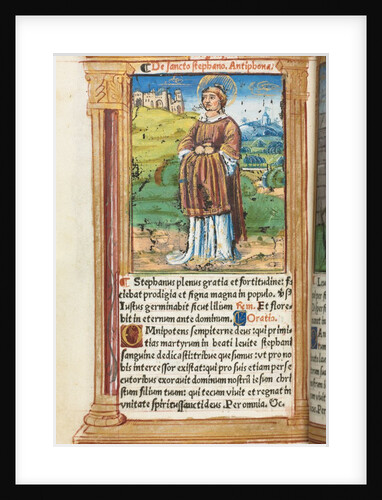 De sancto stephano. Antiphona:
Stephanus plenus gratia et fortitudine: fa
ciebat prodigia et signa magna in populo. v̄s
Iustus germinabit sicut lilium Rem. Et flore
bit in eternum ante dominum. Oratio.
OMnipotens sempiterne deus: qui primi
tias martyrum in beati leuite stephani
sanguine dedicasti: tribue quesumus: vt pro no
bis intercessor existat: qui pro suis etiam perse
cutoribus exorauit dominum nostrum iesum chri
stum filium tuum: qui tecum viuit et regnat in
vnitate spiritussancti deus. Per omnia. &c.